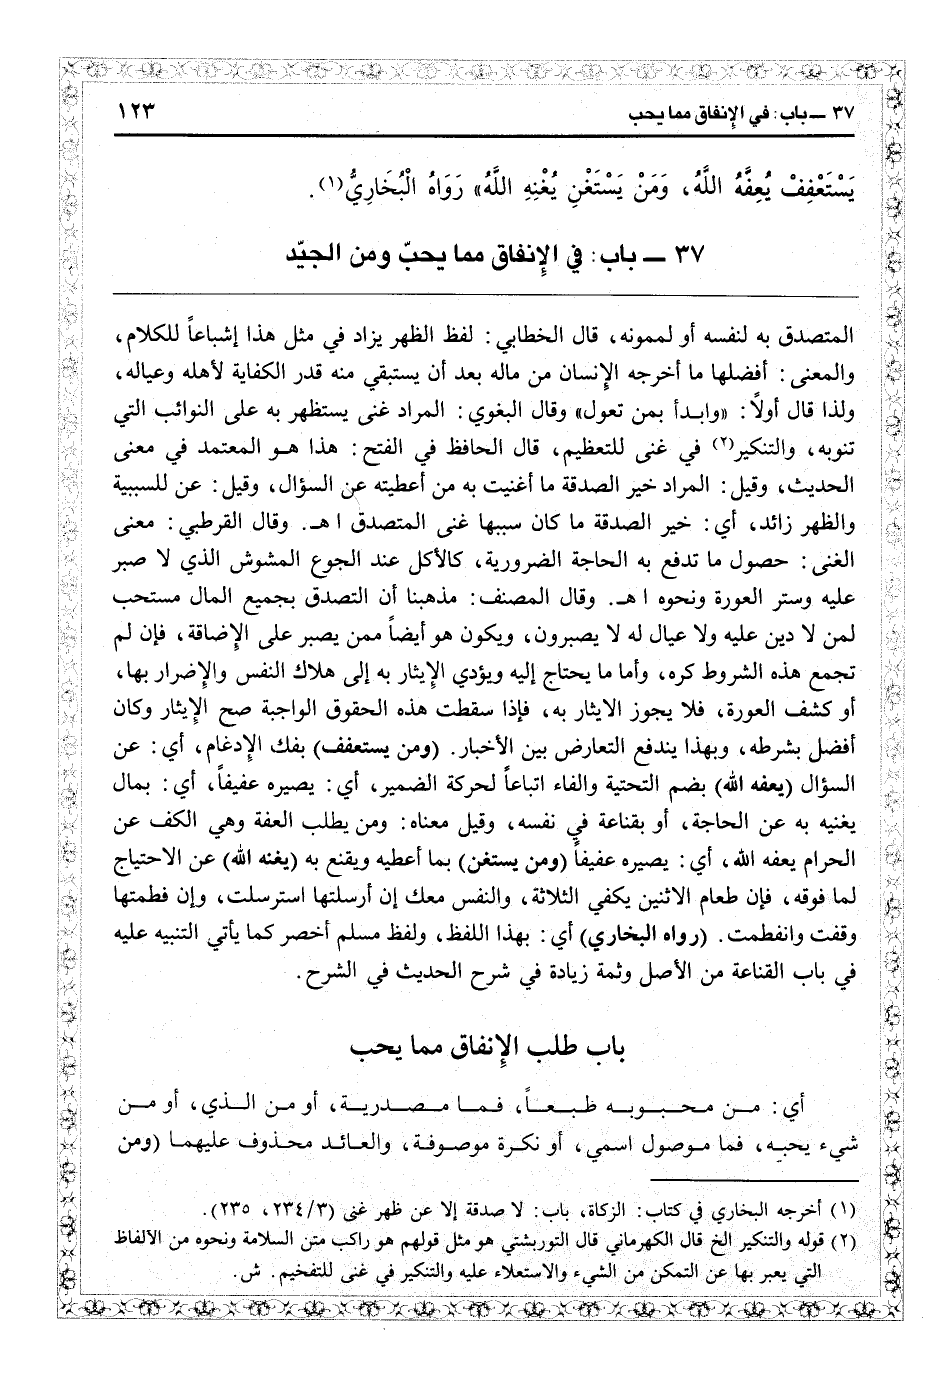 ٣٧ ــ باب: في الإنفاق مما يحب ١٢٣
يَسْتَعْفِفْ يُعِفَّهُ اللَّهُ، وَمَنْ يَسْتَغْنِ يُغْنِهِ اللَّهُ» رَوَاهُ الْبُخَارِيُّ(١).
٣٧ ــ باب: في الإنفاق مما يحبّ ومن الجيّد
المتصدق به لنفسه أو لممونه، قال الخطابي: لفظ الظهر يزاد في مثل هذا إشباعاً للكلام،
والمعنى: أفضلها ما أخرجه الإنسان من ماله بعد أن يستبقي منه قدر الكفاية لأهله وعياله،
ولذا قال أولاً: «وابدأ بمن تعول» وقال البغوي: المراد غنى يستظهر به على النوائب التي
تنوبه، والتنكير(٢) في غنى للتعظيم، قال الحافظ في الفتح: هذا هو المعتمد في معنى
الحديث، وقيل: المراد خير الصدقة ما أغنيت به من أعطيته عن السؤال، وقيل: عن للسببية
والظهر زائد، أي: خير الصدقة ما كان سببها غنى المتصدق ا هـ. وقال القرطبي: معنى
الغنى: حصول ما تدفع به الحاجة الضرورية، كالأكل عند الجوع المشوش الذي لا صبر
عليه وستر العورة ونحوه ا هـ. وقال المصنف: مذهبنا أن التصدق بجميع المال مستحب
لمن لا دين عليه ولا عيال له لا يصبرون، ويكون هو أيضاً ممن يصبر على الإضاقة، فإن لم
تجمع هذه الشروط كره، وأما ما يحتاج إليه ويؤدي الإيثار به إلى هلاك النفس والإضرار بها،
أو كشف العورة، فلا يجوز الايثار به، فإذا سقطت هذه الحقوق الواجبة صح الإيثار وكان
أفضل بشرطه، وبهذا يندفع التعارض بين الأخبار. (ومن يستعفف) بفك الإدغام، أي: عن
السؤال (يعفه الله) بضم التحتية والفاء اتباعاً لحركة الضمير، أي: يصيره عفيفاً، أي: بمال
يغنيه به عن الحاجة، أو بقناعة في نفسه، وقيل معناه: ومن يطلب العفة وهي الكف عن
الحرام يعفه الله، أي: يصيره عفيفاً (ومن يستغن) بما أعطيه ويقنع به (يغنه الله) عن الاحتياج
لما فوقه، فإن طعام الاثنين يكفي الثلاثة، والنفس معك إن أرسلتها استرسلت، وإن فطمتها
وقفت وانفطمت. (رواه البخاري) أي: بهذا اللفظ، ولفظ مسلم أخصر كما يأتي التنبيه عليه
في باب القناعة من الأصل وثمة زيادة في شرح الحديث في الشرح.
باب طلب الإنفاق مما يحب
أي: مـن محـبـوبـه طبـعـاً، فـمـا مـصـدريـة، أو مـن الـذي، أو مـن
شيء يحبـه، فما مـوصول اسمي، أو نكـرة موصـوفـة، والعـائـد محـذوف عليهمـا (ومن
(١) أخرجه البخاري في كتاب: الزكاة، باب: لا صدقة إلا عن ظهر غنى (٢٣٤/٣، ٢٣٥).
(٢) قوله والتنكير الخ قال الكهرماني قال التوربشتي هو مثل قولهم هو راكب متن السلامة ونحوه من الألفاظ
التي يعبر بها عن التمكن من الشيء والاستعلاء عليه والتنكير في غنى للتفخيم. ش.